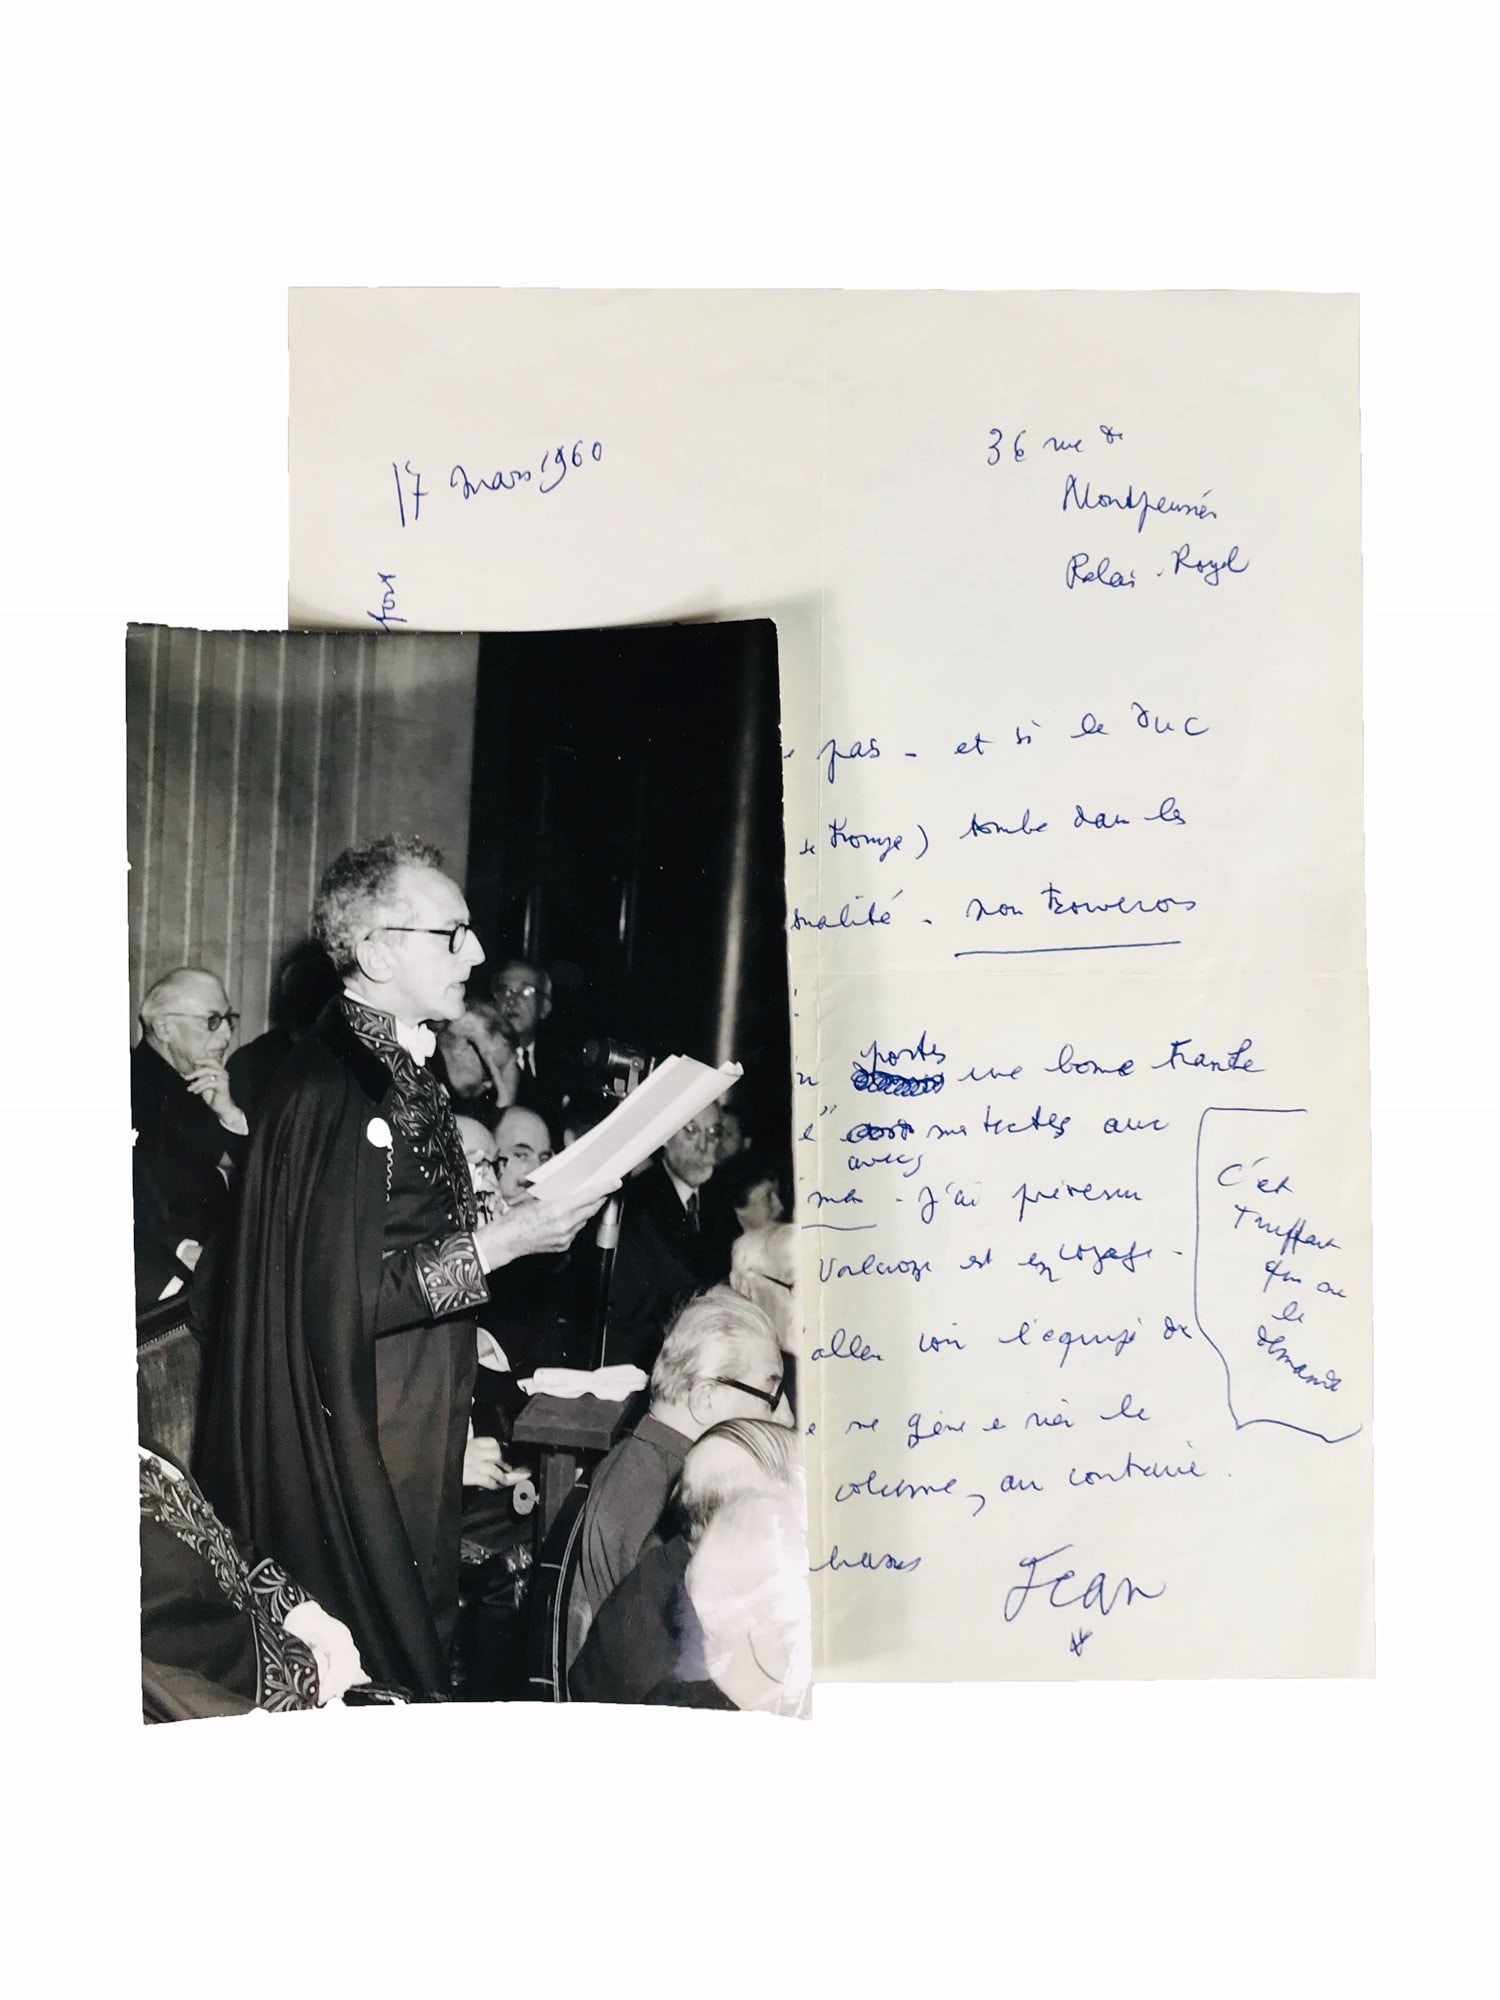 17 mars 1960
36 rue de
Montpensier
Palais-Royal
fort
pas - et si le duc
) tombe dans les
nalité - nous trouverons
portes une bonne tranche
mes textes avec
avec
- J'ai prévenu
Valcroze est en voyage -
aller voir l'équipe de
ne gêne en rien le
volume, au contraire.
Jean
C'est
Truffaut
qui me
le
demande